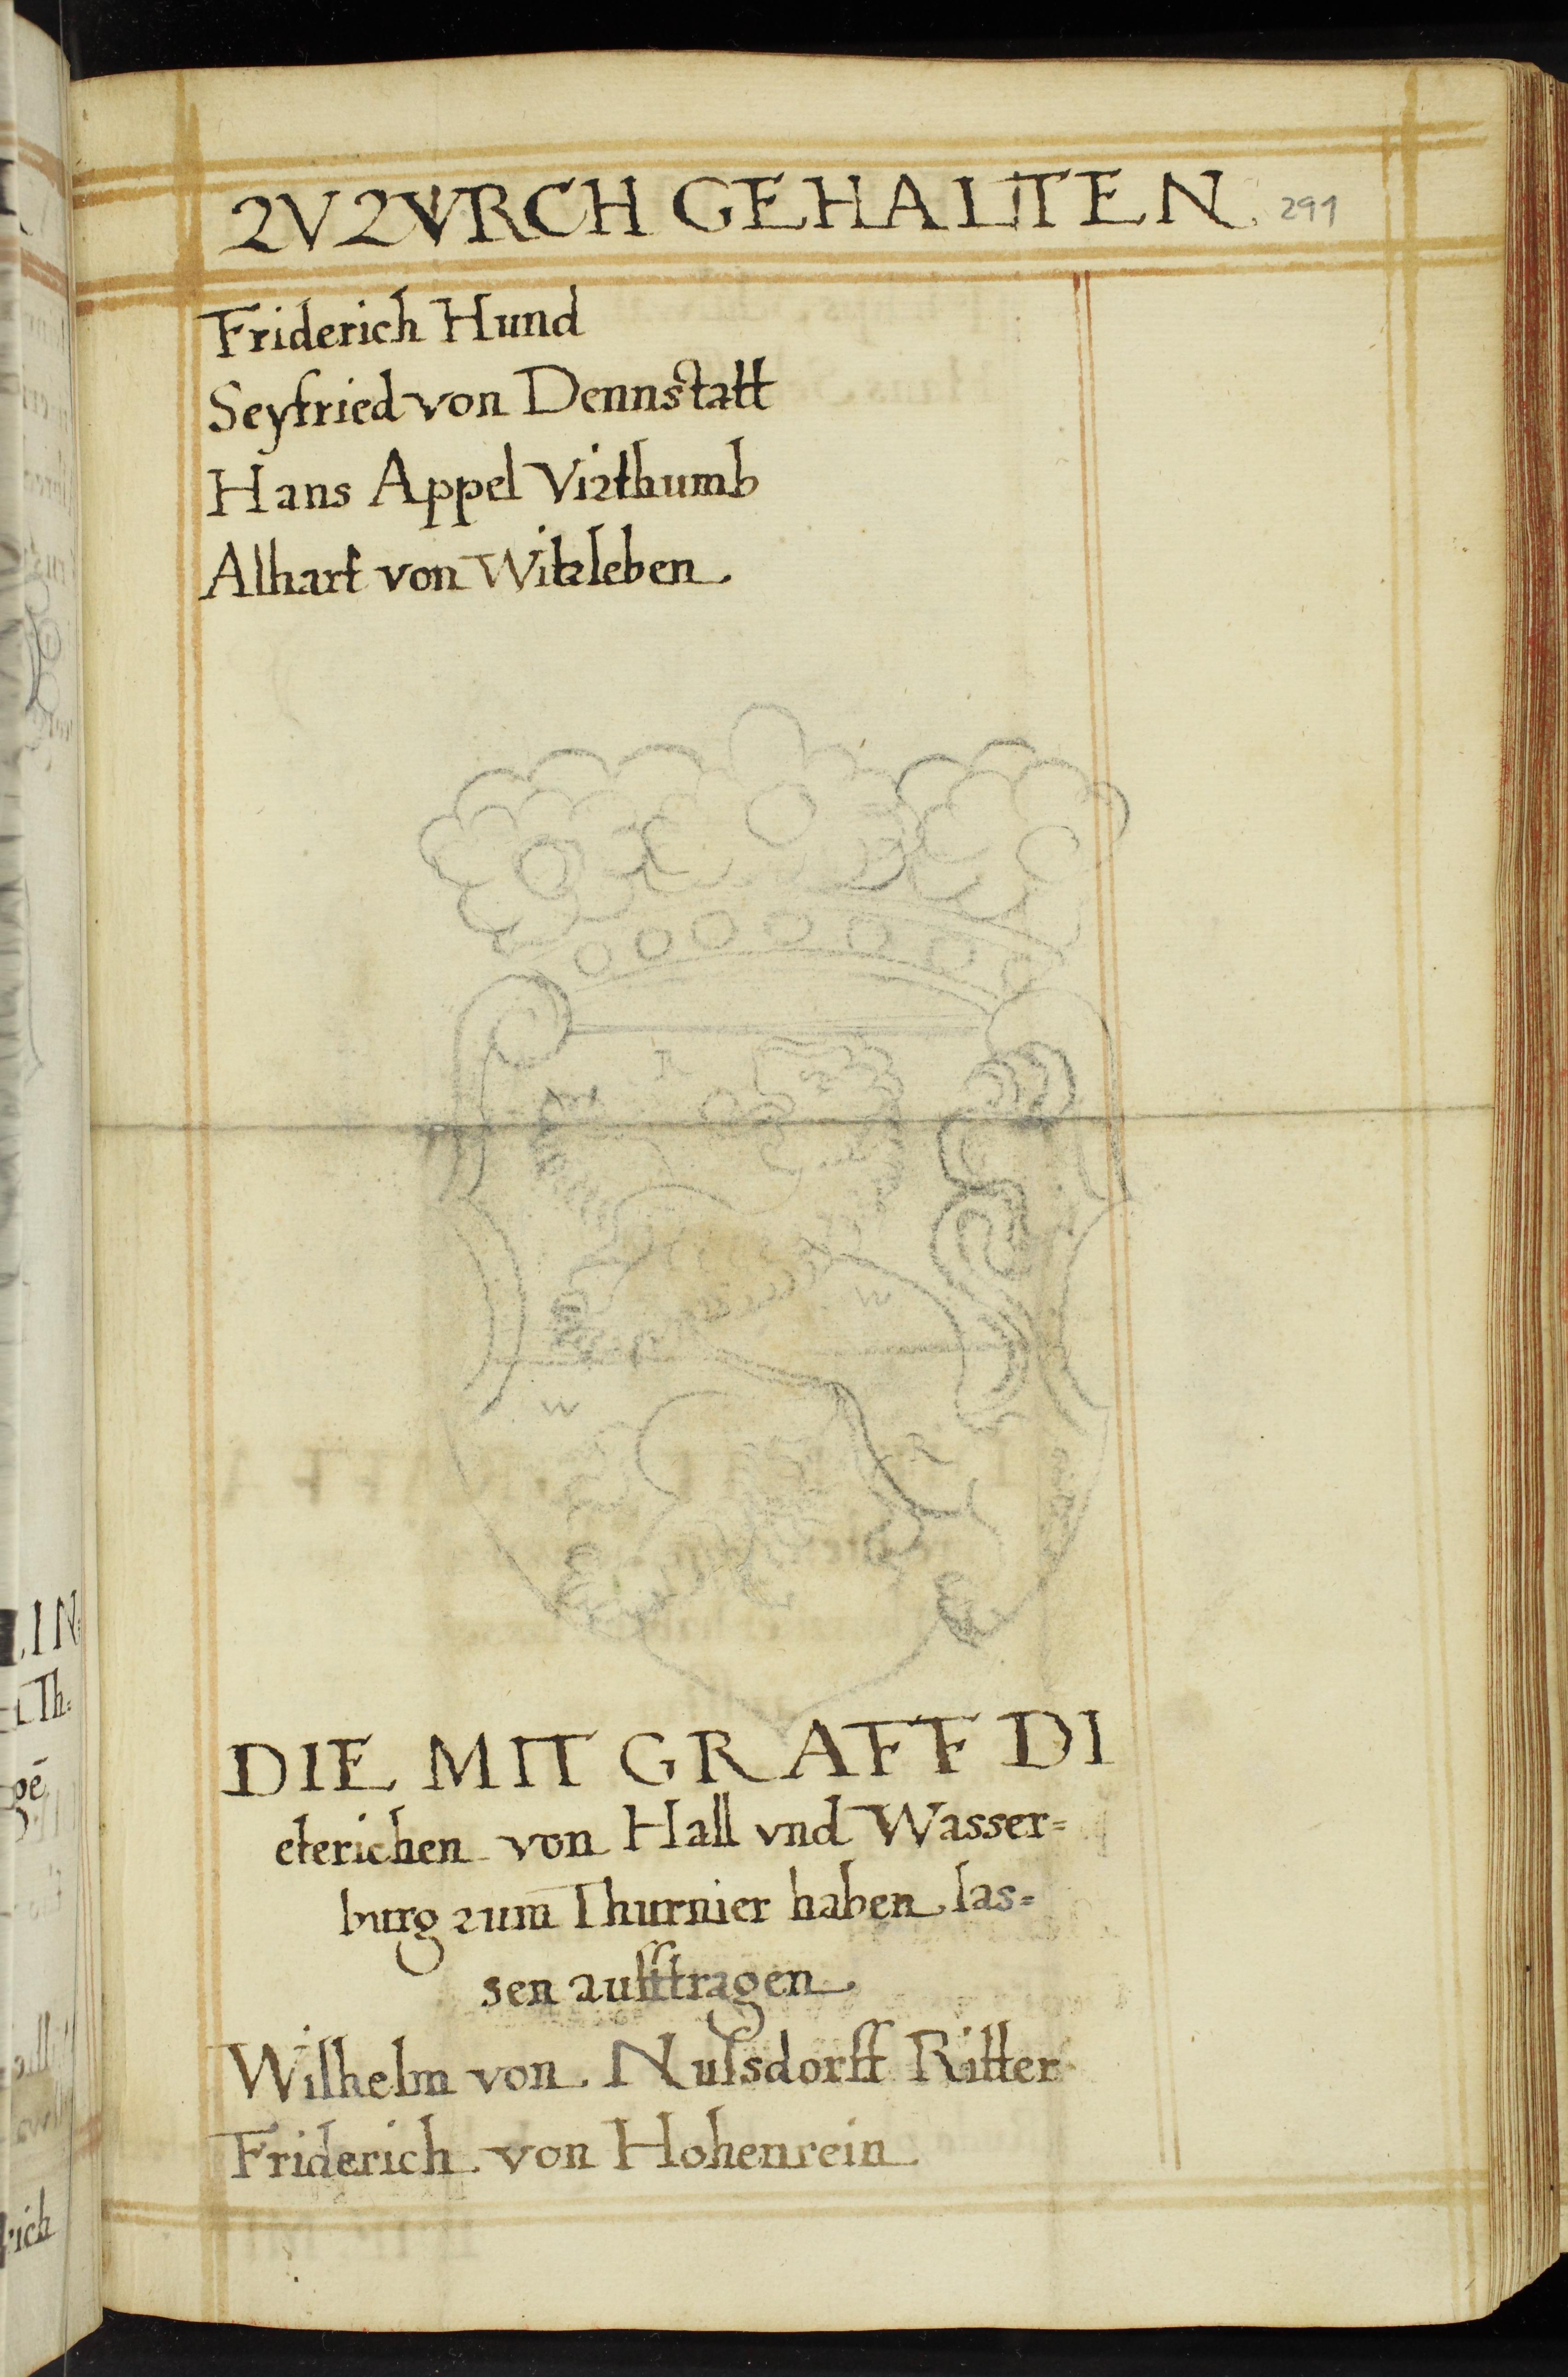 ZV ZVRCH GEHALTEN 291
Friderich Hund
Seyfried von Dennstatt
Hans Appel Vizthumb
Alhart von Witzleben
R
W
W
R
DIE MIT GRAFF DI
eterichen von Hall vnd Wasser=
burg zum Thurnier haben las=
sen aufftragen
Wilhelm von Nusdorff Ritter
Friderich von Hohenrein